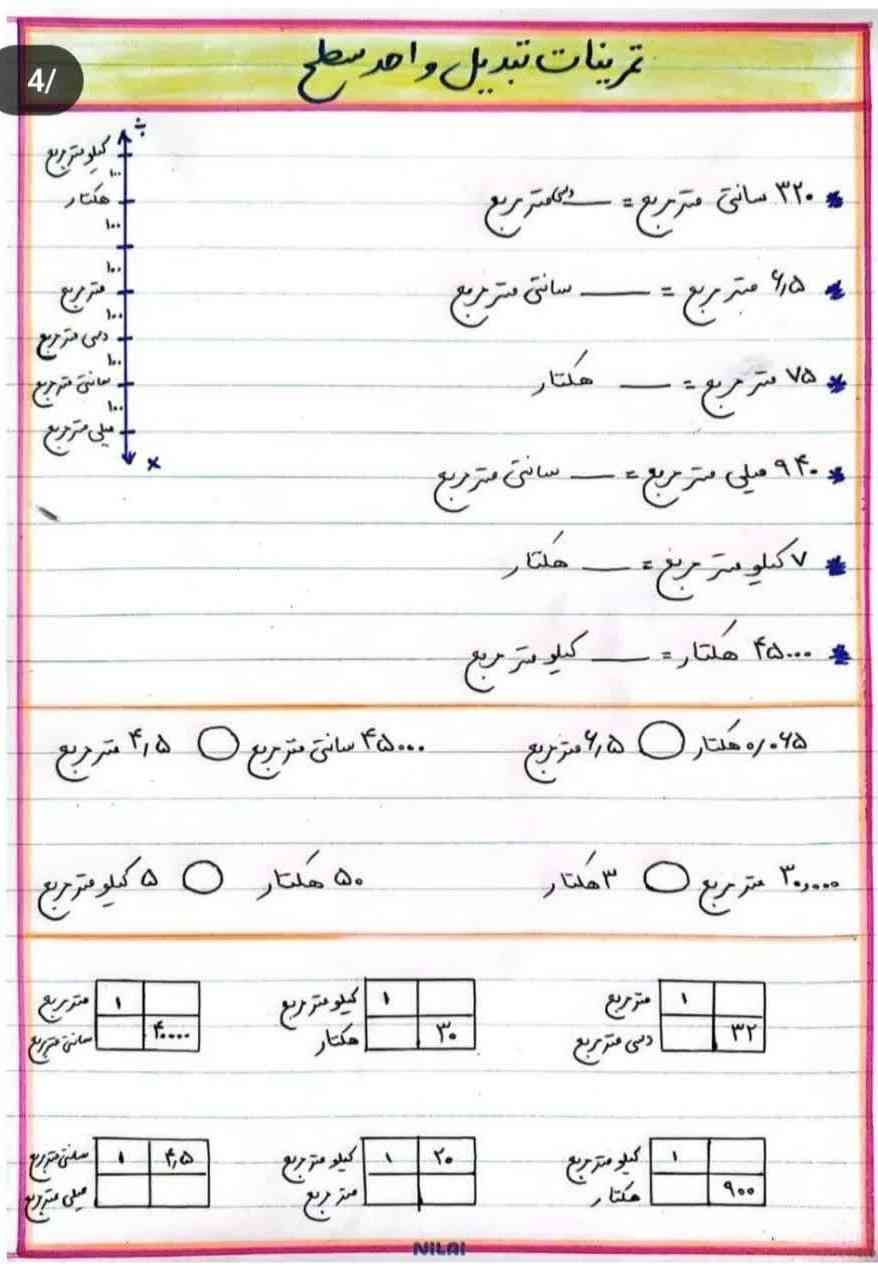 4/
تمرینات تبدیل واحد سطح
÷
کیلومتر مربع
۱۰۰
هکتار
۱۰۰
۱۰۰
متر مربع
۱۰۰
دسی متر مربع
۱۰۰
سانتی متر مربع
۱۰۰
میلی متر مربع
×
* ۳۲۰ سانتی متر مربع = ــــ دسی متر مربع
* ۶٫۵ متر مربع = ــــ سانتی متر مربع
* ۷۵ متر مربع = ــــ هکتار
* ۹۴۰ میلی متر مربع = ــــ سانتی متر مربع
* ۷ کیلو متر مربع = ــــ هکتار
* ۴۵۰۰۰ هکتار = ــــ کیلو متر مربع
۰٫۰۶۵ هکتار ○ ۶٫۵ متر مربع
۴۵۰۰۰ سانتی متر مربع ○ ۴٫۵ متر مربع
۳۰٫۰۰۰ متر مربع ○ ۳ هکتار
۵۰ هکتار ○ ۵ کیلو متر مربع
متر مربع ۱
دسی متر مربع ۳۲
کیلو متر مربع ۱
هکتار ۳۰
متر مربع ۱
سانتی متر مربع ۴۰۰۰۰
کیلو متر مربع ۱
هکتار ۹۰۰
کیلو متر مربع ۱ ۲۰
متر مربع
سانتی متر مربع ۱ ۴٫۵
میلی متر مربع
NILAI